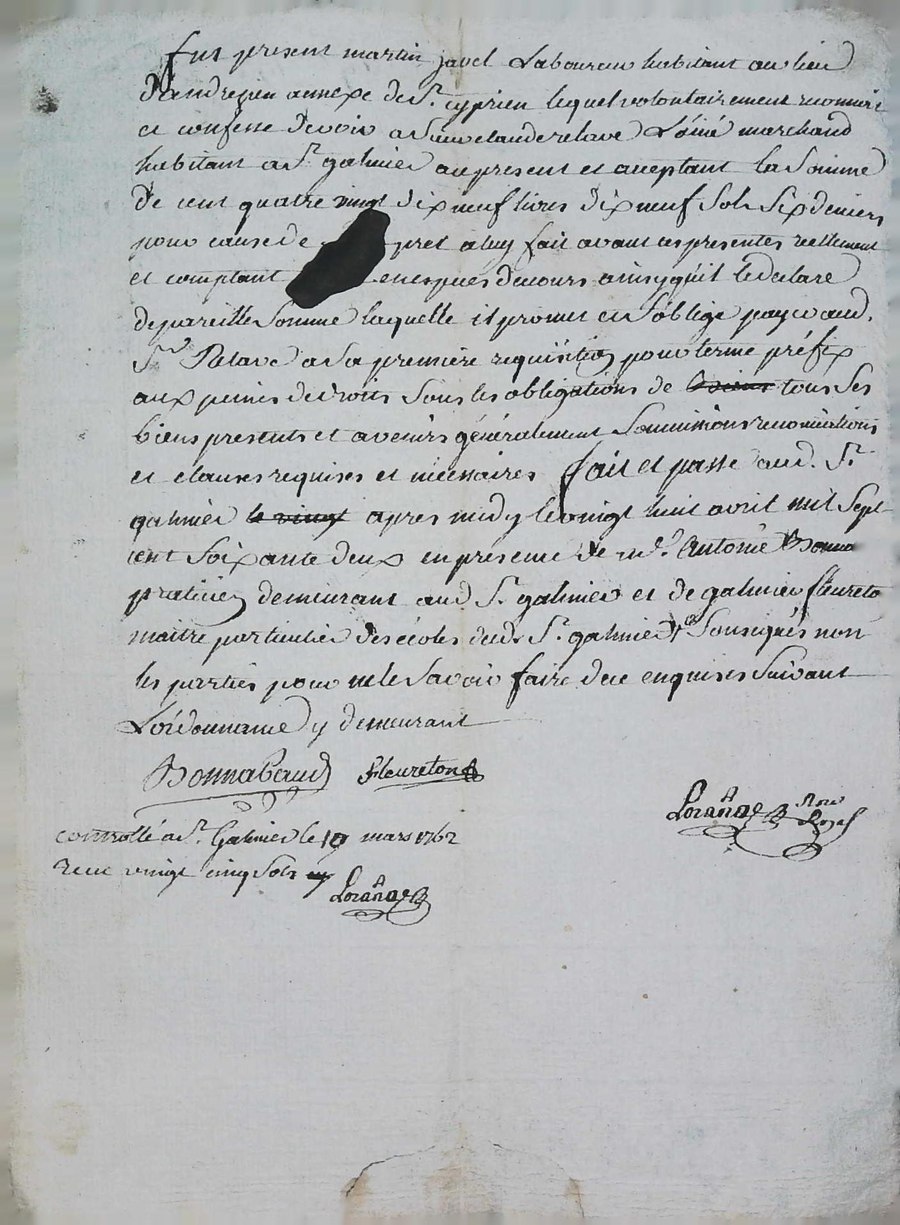 fut present martin javel Laboureur habitant au lieu
d'andrezieu annexe de St. cyprien lequel volontairement reconnoit
et confesse devoir a Sieur claude relave L'ainé marchand
habitant a St. galmier au present et aceptant la Somme
de cent quatre vingt dix neuf livres dix neuf Sols Six deniers
pour cause de pret a luy fait avant ces presentes reellement
et comptant en espées de cours ainsy qu'il le declare
de pareille Somme laquelle il promet et S'oblige payer aud.
Sr. Relave a Sa premiere requisition pour terme préfix
aux peines de droits Sous les obligations de tous Ses
biens presents et avenirs généralement Soumissions renonciations
et clauses requises et necessaires fait et passé aud. St.
galmier apres midy le vingt huit avril mil Sept
cent Soixante deux en presence de me. Antoine Bonna
praticien demeurant aud St. galmier et de galmier fleureto
maitre particulier des écoles dud. St. galmier Sousignés non
les parties pour ne le Savoir faire de ce enquises Suivant
L'ordonnance y demeurant
Bonnabaud fleureton
Lorange Nore Royal
controllé a St. Galmier le 10 mars 1762
recu vingt cinq Sols
Lorange